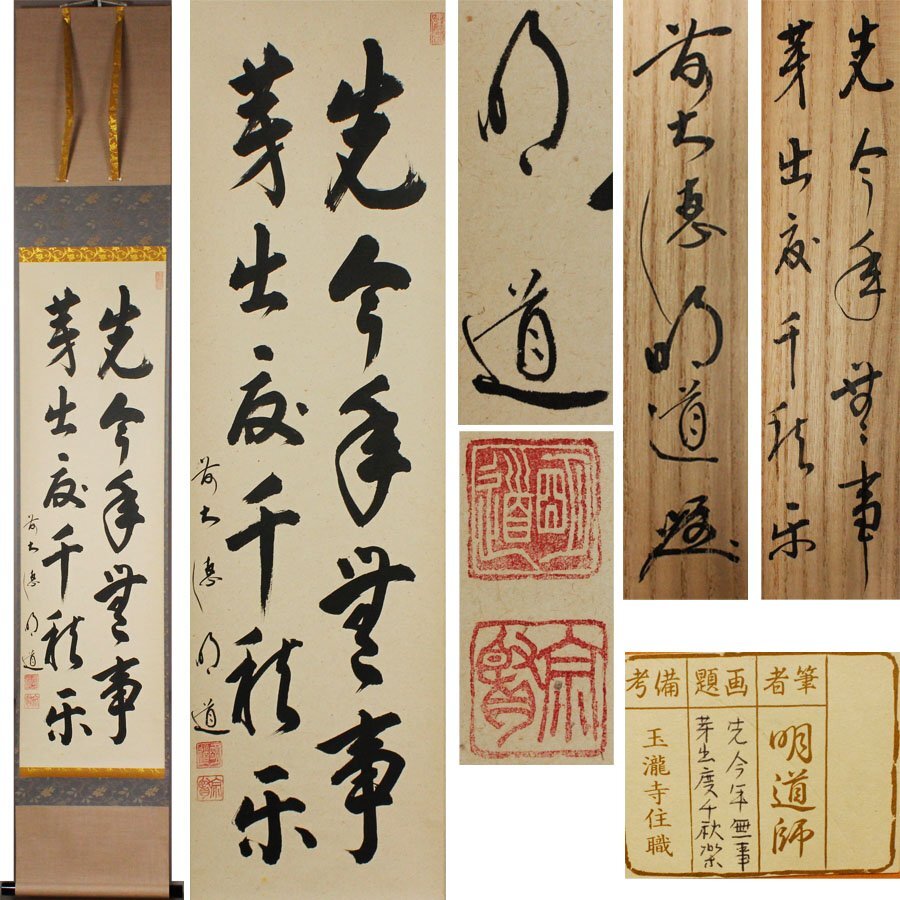 先今年無事
芽出度千秋楽
前大徳 明道
先今年無事
芽出度千秋楽
前大徳 明道
明道
宗賢
前大徳明道題
先今年無事
芽出度千秋楽
筆者
明道師
画題
先今年無事
芽出度千秋楽
備考
玉瀧寺住職